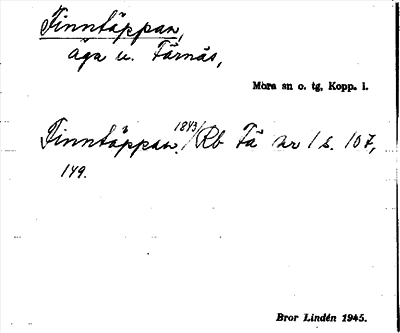 Finntäppan,
äga u. Färnäs,
Mora sn o. tg, Kopp. l.
Finntäppan. 1843/Rb Fä nr 1 s. 107,
149.
Bror Lindén 1945.